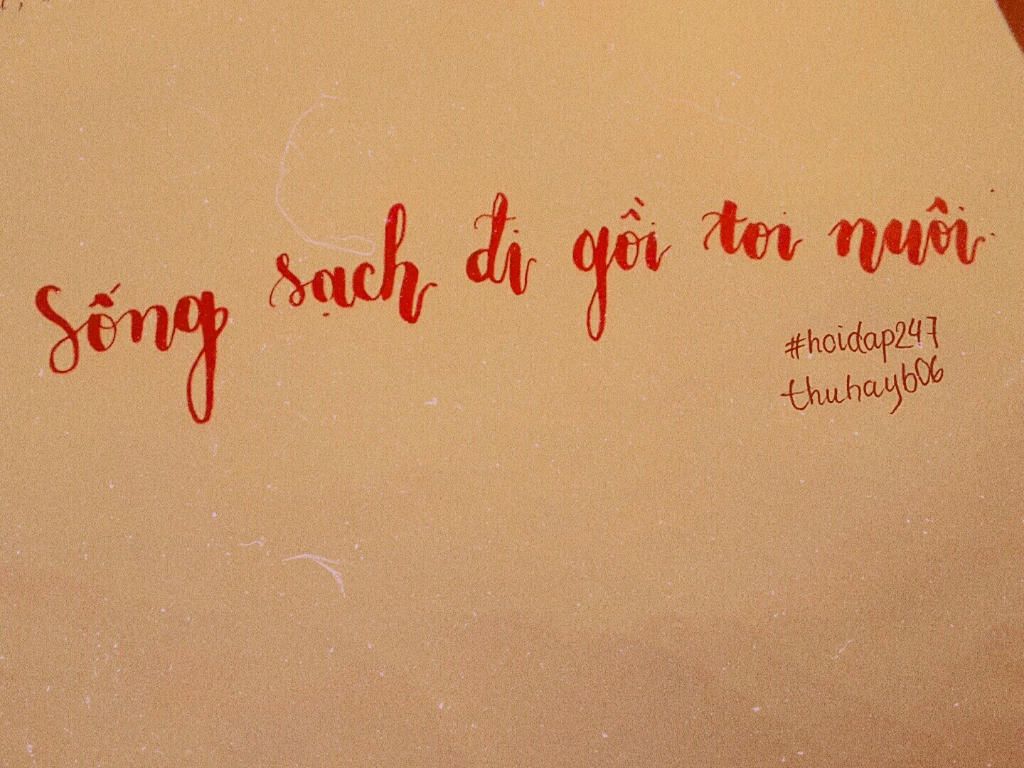 Sống sạch đi gồi toi nuôi
#hoidap247
thuhayb06